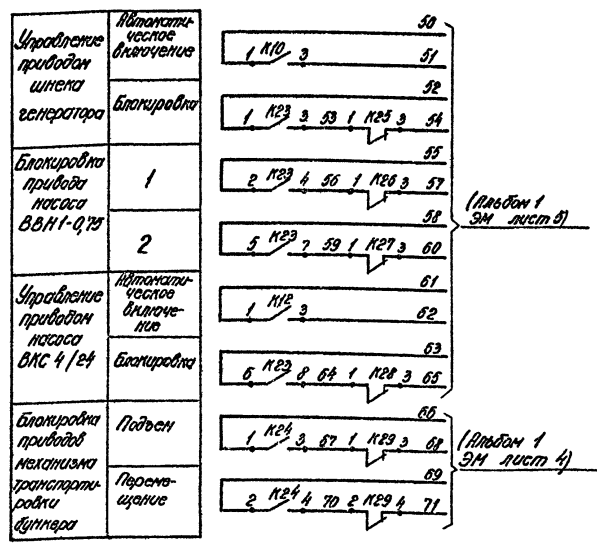 Управление
приводом
шнека
генератора
Автомати-
ческое
включение
Блокировка
Блокировка
привода
насоса
ВВН1-0,75
1
2
Управление
приводом
насоса
ВКС 4/24
Автомати-
ческое
включе-
ние
Блокировка
Блокировка
приводов
механизма
транспорти-
ровки
бункера
Подъем
Переме-
щение
50
1 К10 3 51
52
1 К23 3 53 1 К25 3 54
55
2 К23 4 56 1 К26 3 57
58
5 К23 7 59 1 К27 3 60
61
1 К12 3 62
63
6 К23 8 64 1 К28 3 65
66
1 К24 3 67 1 К29 3 68
69
2 К24 4 70 2 К29 4 71
(Альбом 1
ЭМ лист 5)
(Альбом 1
ЭМ лист 4)